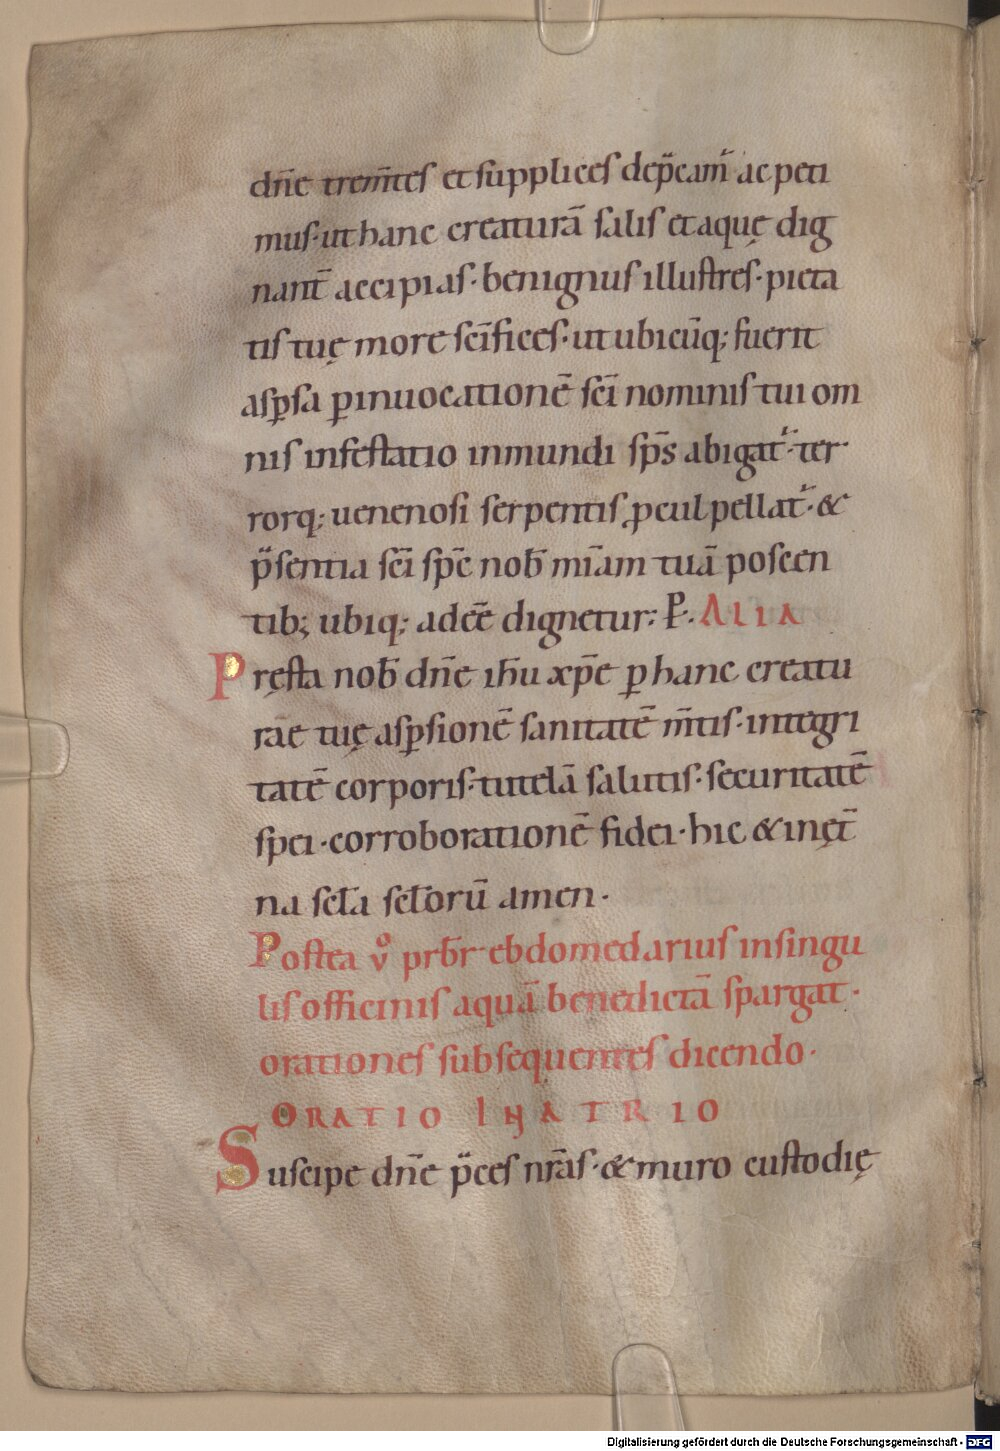 dn̄e trem̄tes et supplices dep̄cam̃ ac peti
mus· ut hanc creaturā salis et aquę dig
nant̄ accipias· benignus illustres· pieta
tis tuę more sc̄ifices· ut ubicūq; fuerit
asꝑsa ꝑ inuocationē sc̄i nominis tui om
nis infestatio inmundi sp̄s abigat̃· ter
rorq; uenenosi serpentis ꝓcul pellat̃· &
p̄sentia sc̄i sp̄c nob̄ mi̅am tuā poscen
tib; ubiq; adeē dignetur: P̱. ALIA
Pręsta nob̄ dn̄e ih̄u xp̄e ꝑ hanc creatu
rāe tuę asꝑsionē sanitatē m̄tis· integri
tatē corporis· tutelā salutis· securitatē
spei· corroborationē fidei· hic & in ęt̄
na sc̄la sc̄lorū amen·
Postea v̊ prb̄r ebdomedarius in singu
lis officinis aquā benedictā spargat·
orationes subsequentes dicendo·
ORATIO IN ATRIO
Suscipe dn̄e p̄ces nr̄as· & muro custodię
Digitalisierung gefördert durch die Deutsche Forschungsgemeinschaft - DFG